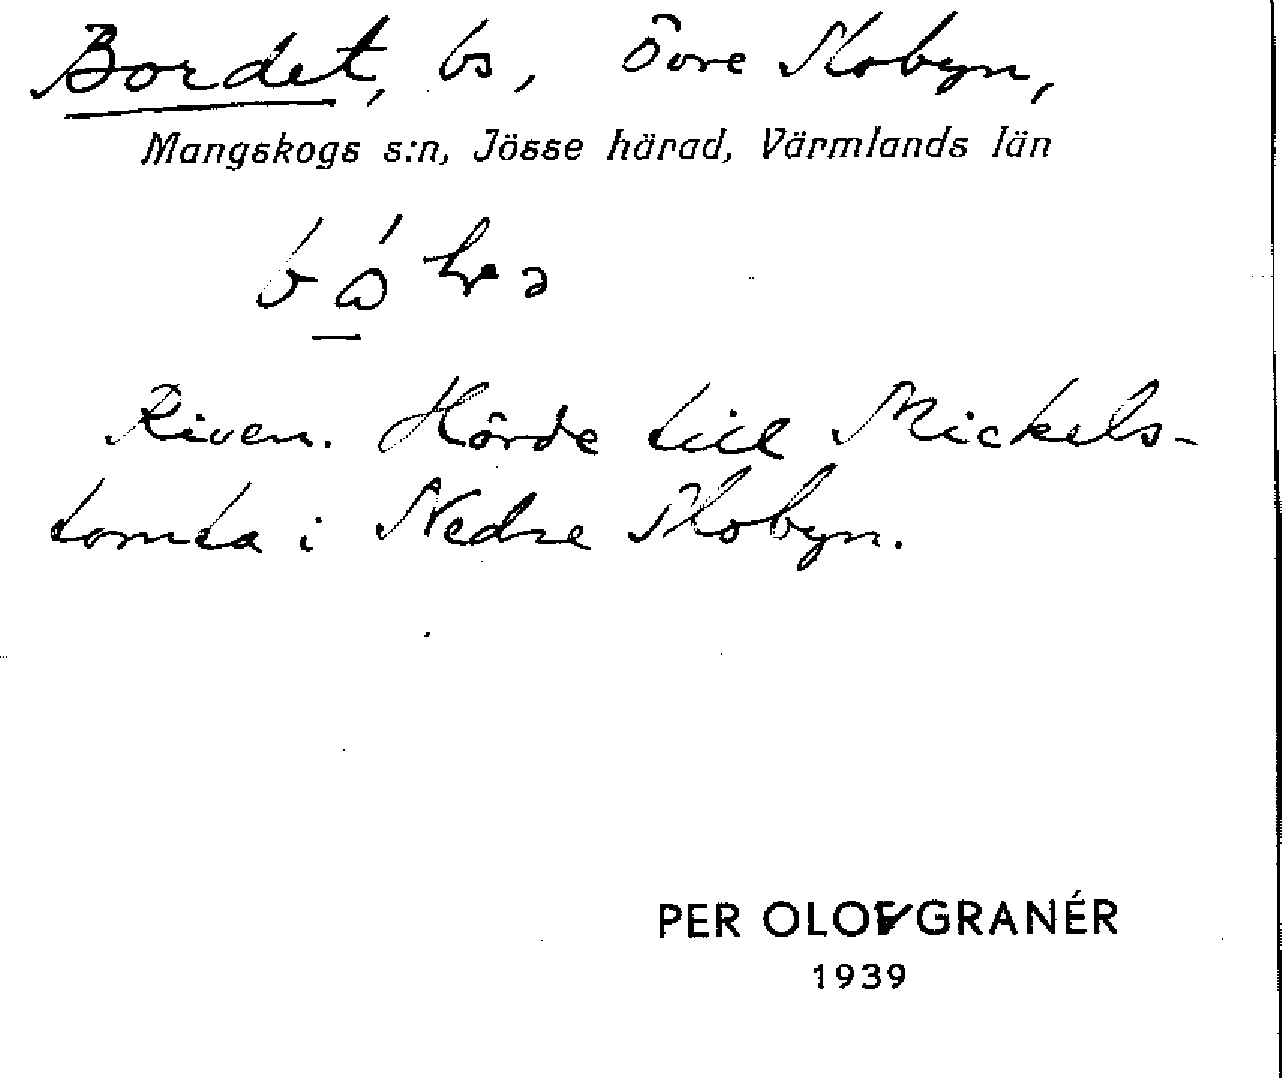 Bordet, bs, Övre Slobyn,
Mangskogs s:n, Jösse härad, Värmlands län
Riven. Hörde till Mickels-
tomta i Nedre Slobyn.
PER OLOF GRANÉR
1939